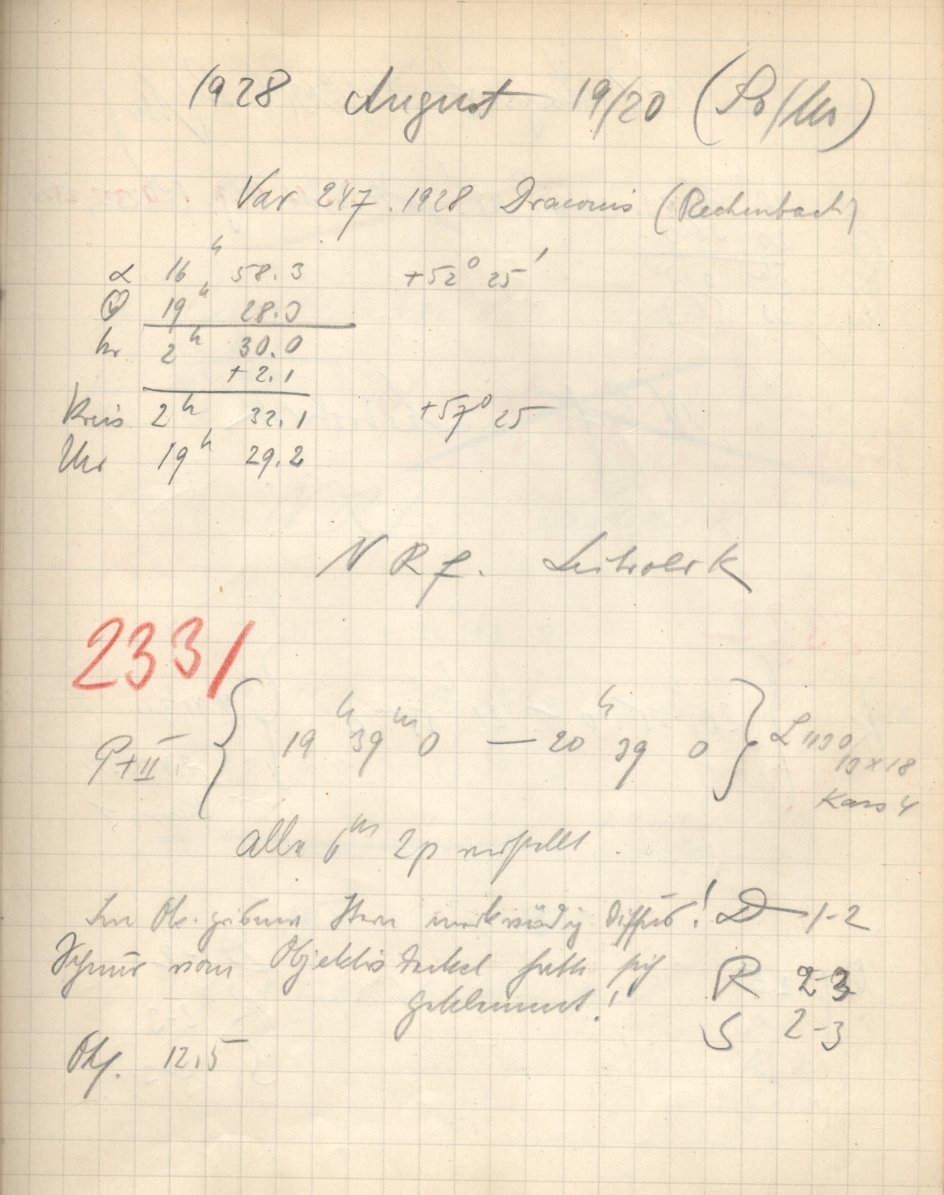 1928 August 19/20 (So/Mo)
Var 247.1928 Draconis (Rechenbach)
α 16h 58.3 +52° 25'
19h 28.0
2h 30.0
+2.1
Kreis 2h 32.1 +57° 25
Uhr 19h 29.2
N R f.
2331
P+II { 19h 39m 0 — 20h 39 0 }
13×18
Kass 4
alle 6m 2p verstellt.
Im Ok. Stern merkwürdig diffus! D 1-2
Schnur vom Objektivdeckel hatte sich R 2-3
geklemmt! S 2-3
Okf. 12.5